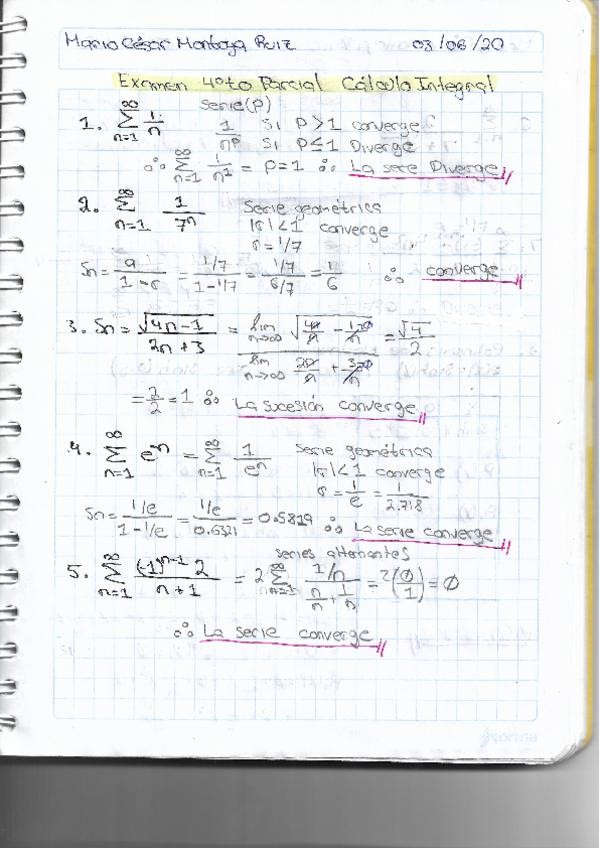 Mario César Montoya Ruiz 03/06/20
Examen 4º to Parcial Cálculo Integral
1. ∞ Σ n=1 1/n serie(p) 1/n^p si p>1 converge
si p≤1 Diverge
∴ ∞ Σ n=1 1/n^1 = p=1 ∴ La serie Diverge
2. ∞ Σ n=1 1/7^n Serie geométrica
|r|<1 converge
r=1/7
Sn = a/(1-r) = (1/7)/(1-1/7) = (1/7)/(6/7) = 1/6 ∴ converge
3. Sn = √(4n-1)/(2n+3) = lim n→∞ √(4n/n - 1/n) / lim n→∞ 2n/n + 3/n = √4/2
= 2/2 = 1 ∴ La sucesión converge
4. ∞ Σ n=1 e^n = ∞ Σ n=1 1/e^n Serie geométrica
|r|<1 converge
r = 1/e = 1/2.718
Sn = (1/e)/(1-1/e) = (1/e)/0.6321 = 0.5819 ∴ La serie converge
series alternantes
5. ∞ Σ n=1 (-1)^(n-1) 2/(n+1) = 2 ∞ Σ n=1 (1/n)/(n/n + 1/n) = 2(0/1) = 0
∴ La serie converge
norma